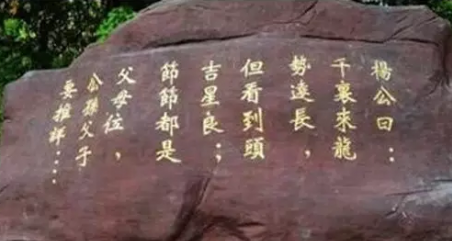 楊公曰：
千裏來龍
勢逺長，
但看到頭
吉星良；
節節都是
父母位，
公孫父子
要推詳…